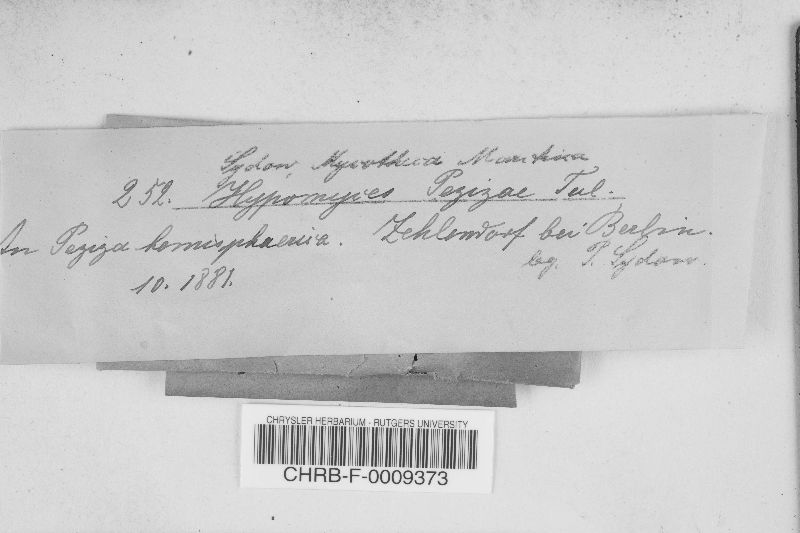 Sydow, Mycotheca Marchica
252. Hypomyces Pezizae Tul.
An Peziza hemisphaerica. Zehlendorf bei Berlin.
leg. P. Sydow.
10. 1881.
CHRYSLER HERBARIUM - RUTGERS UNIVERSITY
CHRB-F-0009373